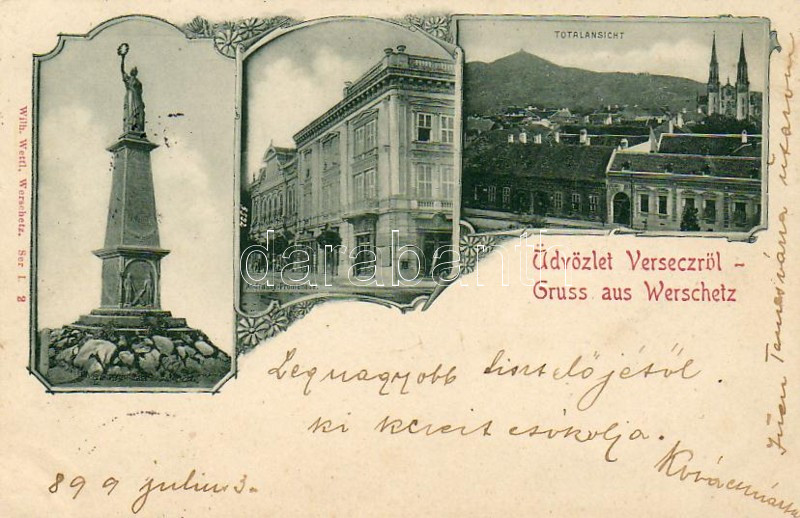 Wilh. Wettl, Werschetz. Ser I. 2
TOTALANSICHT
darabanth.com
Üdvözlet Verseczről –
Gruss aus Werschetz
Legnagyobb tisztelőjétől
ki kezeit csókolja.
899 julius 3.